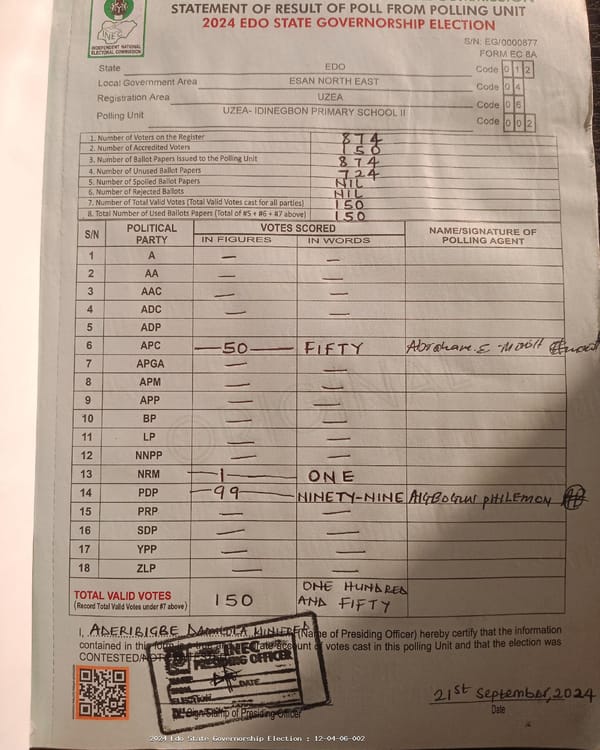 STATEMENT OF RESULT OF POLL FROM POLLING UNIT
2024 EDO STATE GOVERNORSHIP ELECTION
INEC
INDEPENDENT NATIONAL
ELECTORAL COMMISSION
S/N: EG/0000877
FORM EC 8A
State EDO Code 0 1 2
Local Government Area ESAN NORTH EAST Code 0 4
Registration Area UZEA Code 0 6
Polling Unit UZEA- IDINEGBON PRIMARY SCHOOL II Code 0 0 2
1. Number of Voters on the Register 874
2. Number of Accredited Voters 150
3. Number of Ballot Papers Issued to the Polling Unit 874
4. Number of Unused Ballot Papers 724
5. Number of Spoiled Ballot Papers NIL
6. Number of Rejected Ballots NIL
7. Number of Total Valid Votes (Total Valid Votes cast for all parties) 150
8. Total Number of Used Ballots Papers (Total of #5 + #6 + #7 above) 150
S/N POLITICAL PARTY VOTES SCORED NAME/SIGNATURE OF POLLING AGENT
IN FIGURES IN WORDS
1 A — —
2 AA — —
3 AAC — —
4 ADC — —
5 ADP
6 APC —50— FIFTY
7 APGA — —
8 APM — —
9 APP — —
10 BP — —
11 LP — —
12 NNPP — —
13 NRM —1— ONE
14 PDP —99— NINETY-NINE AIGBOGUN PHILEMON
15 PRP — —
16 SDP — —
17 YPP — —
18 ZLP — —
TOTAL VALID VOTES 150 ONE HUNDRED AND FIFTY
(Record Total Valid Votes under #7 above)
I, ADERIBIGBE DAMILOLA (Name of Presiding Officer) hereby certify that the information
contained in this form is a true and account of votes cast in this polling Unit and that the election was
CONTESTED/NOT
INEC
PRESIDING OFFICER
DATE
ELECTION
Sign/Stamp of Presiding Officer
21st September, 2024
Date
2024 Edo State Governorship Election : 12-04-06-002